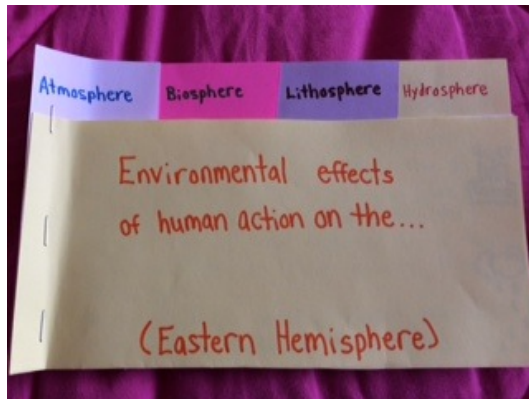 Atmosphere Biosphere Lithosphere Hydrosphere
Environmental effects
of human action on the...
(Eastern Hemisphere)